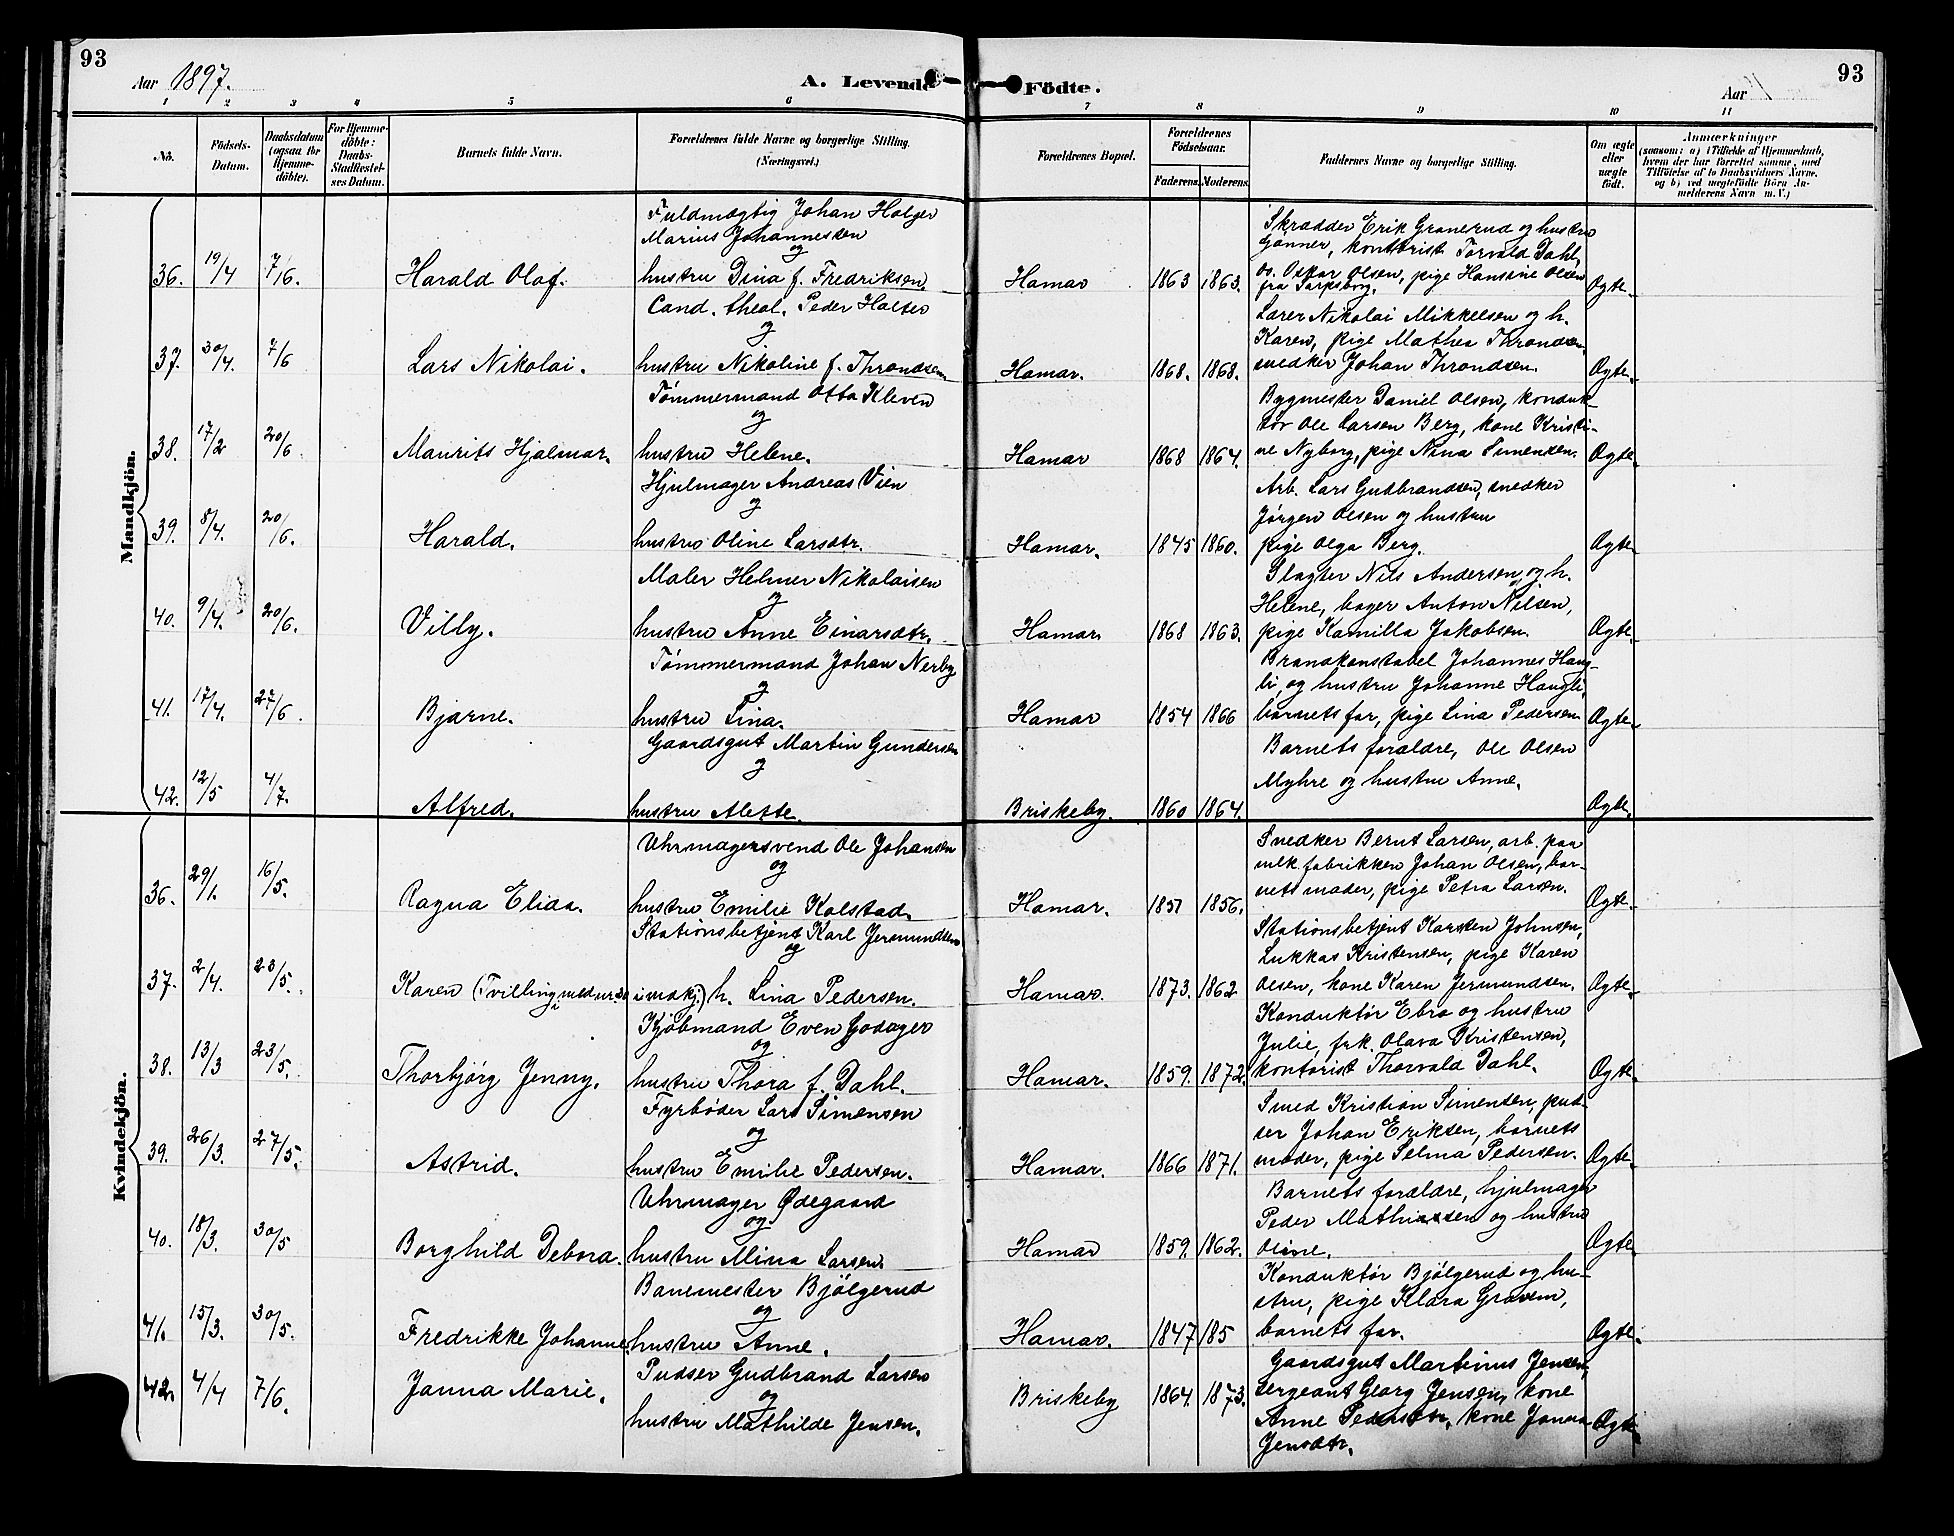 93
Aar 1897.
A. Levende
Födte.
Aar
93
1 2 3 4 5 6 7 8 9 10 11
No. Födsels-Datum. Daabsdatum (ogsaa for Hjemme-döbte). For Hjemme-döbte: Daabs-Stadfæstel-ses Datum. Barnets fulde Navn. Forældrenes fulde Navne og borgerlige Stilling. (Næringsvei.) Forældrenes Bopæl. Forældrenes Födselsaar. Faderens. Moderens. Faddernes Navne og borgerlige Stilling. Om ægte eller uægte födt. Anmærkninger (saasom: a) i Tilfælde af Hjemmedaab, hvem der har forrettet samme, med Tilföielse af to Daabsvidners Navne, og b) ved uægtefödte Börn An-melderens Navn m. V.)
Mandkjön.
Fuldmægtig Johan Holger
Marius Johannessen
og
36. 19/4 7/6. Harald Olaf. hustru Dina f. Fredriksen. Hamar 1863 1863. Ægte.
Skrædder Erik Granerud og hustru
Gönner, kontorist Torvald Dahl,
os. Oskar Olsen, pige Hansine Olsen
fra Sarpsborg.
Cand. theol. Peder Holter
og
37. 30/4. 7/6 Lars Nikolai. hustru Nikoline f. Throndsen. Hamar. 1868. 1868. Ægte.
Lærer Nikolai Mikkelsen og h.
Karen, pige Mathea Throndsen,
snedker Johan Throndsen.
Tømmermand Otto Kleven
og
38. 17/2 20/6 Maurits Hjalmar. hustru Helene. Hamar 1868 1864. Ægte.
Bygmester Daniel Olsen, konduk-
tør Ole Larsen Berg, kone Kristi-
ne Nyborg, pige Nina Simensen.
Hjulmager Andreas Vien
og
39. 8/4. 20/6. Harald. hustru Oline Larsdtr. Hamar. 1845 1860. Ægte
Arb. Lars Gudbrandsen, snedker
Jørgen Olsen og hustru
pige Olga Berg.
Maler Helmer Nikolaisen
og
40. 9/4. 20/6. Villy. hustru Anne Einarsdtr. Hamar 1868 1863. Ægte.
Slagter Nils Andersen og h.
Helene, bager Anton Nilsen,
pige Kamilla Jakobsen.
Tømmermand Johan Nerby
og
41. 17/4. 27/6. Bjarne. hustru Lina. Hamar 1854 1866 Ægte.
Brandkonstabel Johannes Haug-
li, og hustru Johanne Haugli,
barnets far, pige Lina Pedersen.
Gaardsgut Martin Gundersen
og
42. 12/5 4/7. Alfred. hustru Alette. Briskeby. 1860 1864. Ægte.
Barnets forældre, Ole Olsen
Myhre og hustru Anne.
Kvindekjön.
Uhrmagersvend Ole Johansen
og
36. 29/1. 16/5. Ragna Elida. hustru Emilie Kolstad. Hamar. 1857 1856. Ægte.
Snedker Bernt Larsen, arb. paa
mlk. fabrikken Johan Olsen, bar-
nets moder, pige Petra Larsen.
Stationsbetjent Karl Jermundsen
og
37. 2/4. 23/5. Karen (Tvilling med nr. 30 i mdkj.) h. Lina Pedersen. Hamar. 1873. 1862 Ægte.
Stationsbetjent Karsten Johnsen,
Lukkas Kristensen, pige Karen
Olsen, kone Karen Jermundsen.
Kjøbmand Even Godager
og
38. 13/3 23/5. Thorbjörg Jenny. hustru Thora f. Dahl. Hamar. 1859. 1872. Ægte.
Konduktør Ebro og hustru
Julie, frk. Olava Kristensen,
kontorist Thorvald Dahl.
Fyrbøder Lars Simensen
og
39. 26/3. 27/5. Astrid. hustru Emilie Pedersen. Hamar. 1866 1871. Ægte.
Smed Kristian Simensen, pud-
ser Johan Eriksen, barnets
moder, pige Selma Pedersen.
Uhrmager Ødegaard
og
40. 18/3. 30/5 Borghild Debora. hustru Mina Larsen. Hamar 1859. 1862. Ægte.
Barnets forældre, hjulmager
Peder Mathiassen og hustru
Oline.
Banemester Bjølgerud
og
41. 15/3. 30/5. Fredrikke Johanne. hustru Anne. Hamar. 1847 185 Ægte.
Konduktør Bjølgerud og hu-
stru, pige Klara Gravem,
barnets far.
Pudser Gudbrand Larsen
og
42. 4/4 7/6. Janna Marie. hustru Mathilde Jensen. Briskeby 1864. 1873. Ægte
Gaardsgut Martinus Jensen,
sergeant Georg Jensen, kone
Anne Pedersdtr., kone Janna
Jensdtr.